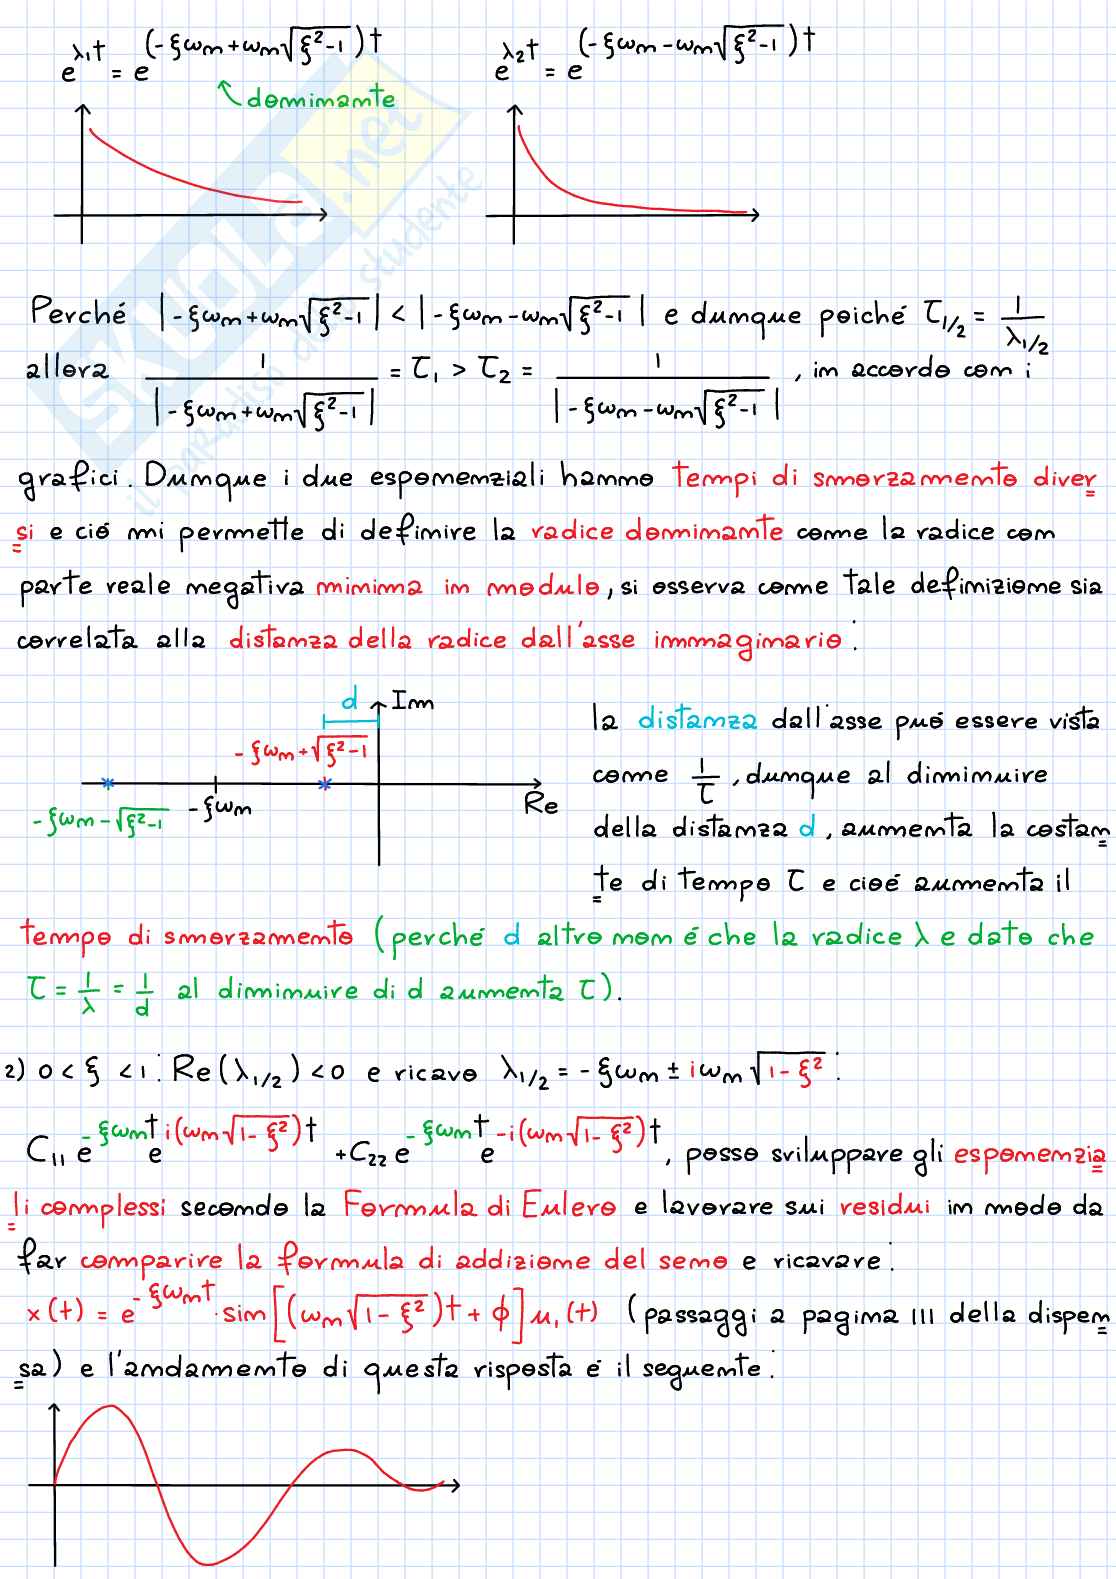 e^λ₁t = e^(-ξωn+ωn√(ξ²-1))t    e^λ₂t = e^(-ξωn-ωn√(ξ²-1))t
dominante
Perché |-ξωn+ωn√(ξ²-1)| < |-ξωn-ωn√(ξ²-1)| e dunque poiché τ₁/₂ = 1/λ₁/₂
allora 1/|-ξωn+ωn√(ξ²-1)| = τ₁ > τ₂ = 1/|-ξωn-ωn√(ξ²-1)|, in accordo con i
grafici. Dunque i due esponenziali hanno tempi di smorzamento diver
si e ció mi permette di definire la radice dominante come la radice con
parte reale negativa minima in modulo, si osserva come tale definizione sia
correlata alla distanza della radice dall'asse immaginario:
d Im
-ξωn+√(ξ²-1)
-ξωn-√(ξ²-1) -ξωn Re
la distanza dall'asse puó essere vista
come 1/τ, dunque al diminuire
della distanza d, aumenta la costan
te di tempo τ e cioé aumenta il
tempo di smorzamento (perché d altro non é che la radice λ e dato che
τ = 1/λ = 1/d al diminuire di d aumenta τ).
2) 0 < ξ < 1: Re(λ₁/₂) < 0 e ricavo λ₁/₂ = -ξωn ± iωn√(1-ξ²):
C₁₁ e^-ξωnt e^i(ωn√(1-ξ²))t + C₂₂ e^-ξωnt e^-i(ωn√(1-ξ²))t, posso sviluppare gli esponenzia
li complessi secondo la Formula di Eulero e lavorare sui residui in modo da
far comparire la formula di addizione del seno e ricavare:
x(t) = e^-ξωnt · sin[(ωn√(1-ξ²))t + φ] u₁(t) (passaggi a pagina 111 della dispen
sa) e l'andamento di questa risposta é il seguente:
SKUOLA.net
il paradiso dello studente